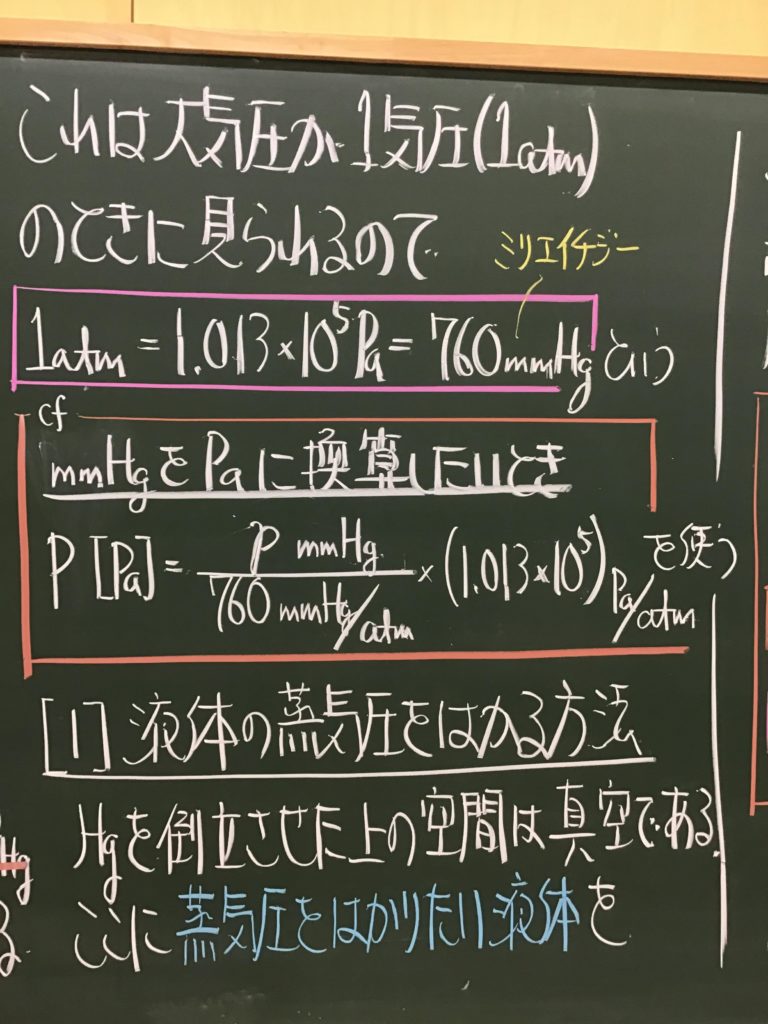 これは大気圧が1気圧(1atm)
のときに見られるので
ミリエイチジー
1atm = 1.013×10⁵Pa = 760mmHg という
cf
mmHgをPaに換算したいとき
P [Pa] = p mmHg / 760 mmHg/atm × (1.013×10⁵) Pa/atm を使う
[1] 液体の蒸気圧をはかる方法
Hgを倒立させた上の空間は真空である.
ここに蒸気圧をはかりたい液体を
Hg
る